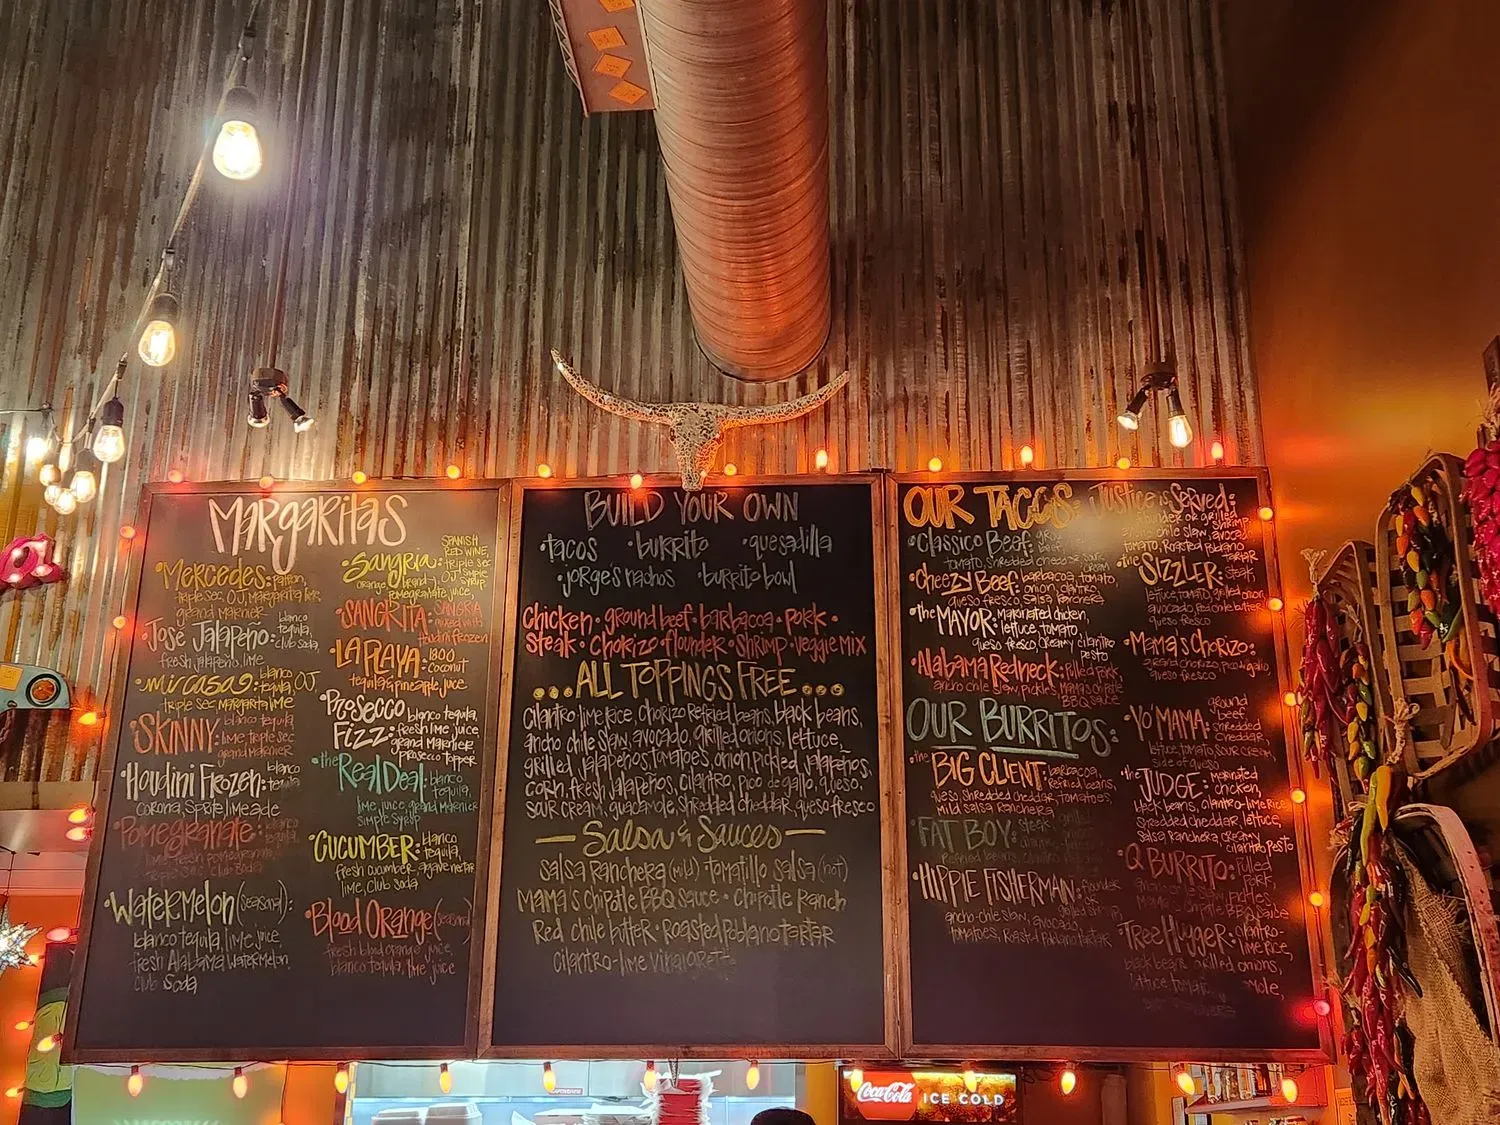 MARGARITAS
•MERCEDES: patron,
triple sec, OJ, Margarita lime,
grand Marnier
•José Jalapeño: blanco
tequila,
club soda,
fresh jalapeño, lime
•mi casa: blanco
tequila, OJ,
triple sec Margarita lime
•SKINNY: blanco tequila,
lime, triple sec,
grand Marnier
•Houdini Frozen: blanco
tequila,
corona, sprite, limeade
•Pomegranate: blanco
tequila,
triple sec, club soda
•Watermelon (seasonal):
blanco tequila, lime juice,
fresh Alabama Watermelon,
club soda
•Sangria: SPANISH
RED WINE,
triple sec
OJ, simple
syrup,
orange brandy,
pomegranate juice,
•SANGRITA: SANGRIA
mixed with
Houdini frozen
•LA PLAYA: 1800
coconut
tequila & pineapple juice
•Prosecco
Fizz: blanco tequila,
fresh lime juice,
grand Marnier
prosecco topper
•the Real Deal: blanco
tequila,
lime juice, grand Marnier
simple syrup
•CUCUMBER: blanco
tequila,
fresh cucumber, agave nectar
lime, club soda
•Blood Orange (seasonal)
fresh blood orange juice,
blanco tequila, lime juice
BUILD YOUR OWN
•tacos •burrito •quesadilla
•jorge's nachos •burrito bowl
Chicken • ground beef • barbacoa • pork •
Steak • Chorizo • flounder • shrimp • veggie mix
...ALL TOPPINGS FREE...
cilantro lime rice, chorizo refried beans, black beans,
ancho chile slaw, avocado, grilled onions, lettuce,
grilled jalapeños, tomatoes, onion, pickled jalapeños,
corn, fresh jalapeños, cilantro, pico de gallo, queso,
sour cream, guacamole, shredded cheddar, queso fresco
— Salsa & Sauces —
salsa ranchera (mild) • tomatillo salsa (hot)
Mama's Chipotle BBQ sauce • Chipotle Ranch
Red chile bitter • Roasted Poblano tartar
cilantro-lime vinaigrette
OUR TACOS:
•Classico Beef: ground beef,
tomato, shredded cheese, sour cream
•Cheezy Beef: barbacoa, tomato,
onion, cilantro,
queso fresco, salsa ranchera
•the MAYOR: marinated chicken,
lettuce, tomato,
queso fresco, creamy cilantro
pesto
•Alabama Redneck: pulled pork,
ancho chile slaw, pickles, Mama's chipotle
BBQ sauce
•Justice is Served:
flounder or grilled
shrimp,
ancho chile slaw, avocado,
tomato, Roasted Poblano
tartar
•the SIZZLER: steak,
lettuce, tomato, grilled onion,
avocado, red chile butter,
queso fresco
•Mama's Chorizo:
ground chorizo, pico d gallo,
queso fresco
OUR BURRITOS:
•the BIG CLIENT: barbacoa,
refried beans,
queso, shredded cheddar, tomatoes,
mild salsa ranchera
•FAT BOY: steak, grilled
refried beans, cilantro
•HIPPIE FISHERMAN: flounder
or grilled shrimp,
ancho-chile slaw, avocado,
tomatoes, Roasted Poblano tartar
•YO' MAMA: ground
beef,
shredded
cheddar,
lettuce, tomato, sour cream,
side of queso
•the JUDGE: marinated
chicken,
black beans, cilantro-lime rice
shredded cheddar, lettuce,
salsa ranchera, creamy
cilantro pesto
•Q BURRITO: pulled
pork,
pickles,
Mama's chipotle BBQ sauce
•Tree Hugger: cilantro-
lime rice,
black beans, grilled onions,
lettuce, tomato,
Coca-Cola ICE COLD